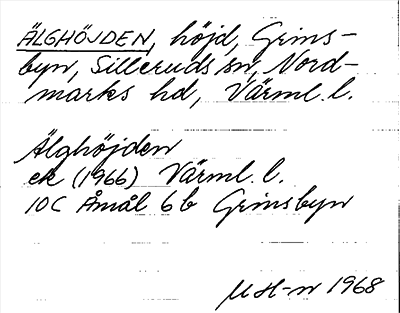 ÄLGHÖJDEN, höjd, Grins-
byn, Silleruds sn, Nord-
marks hd, Värml. l.
Älghöjden
ek (1966) Värml. l.
10C Åmål 6b Grinsbyn
M H-n 1968